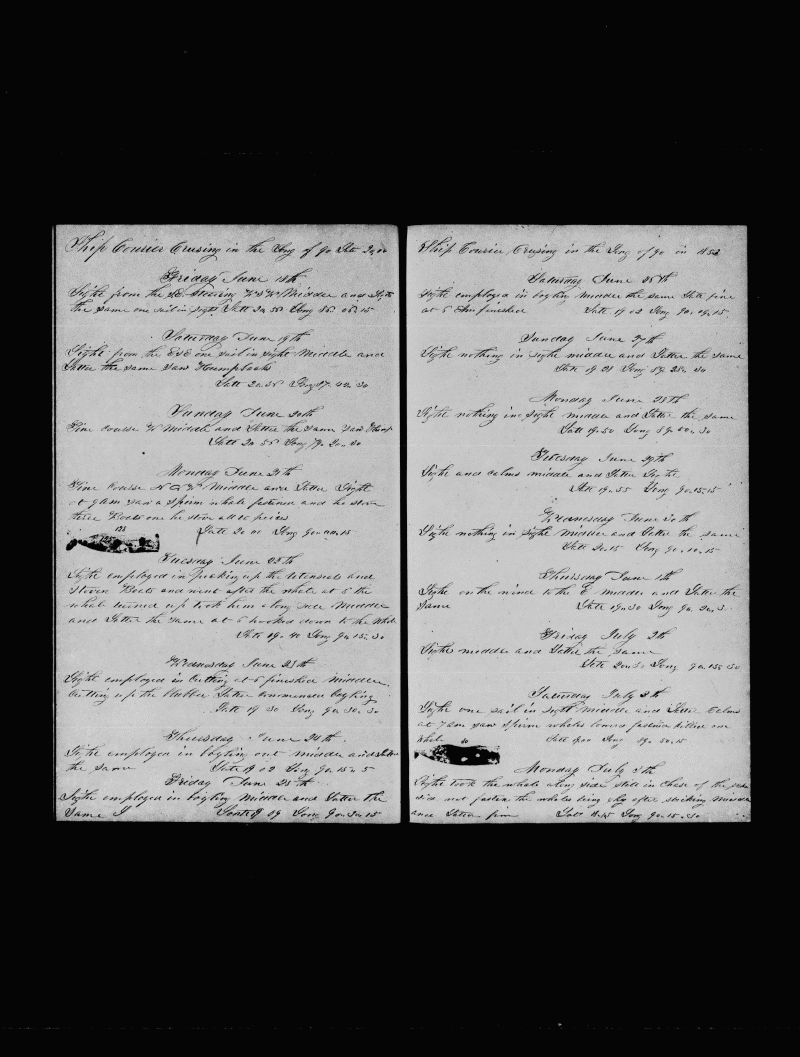 Ship Courier Crusing in the Long of 90 Latt 20,00
Friday June 18th
Light from the SE Steering WSW Middle and Light
the same one sail in sight Latt 20.50 Long 86.05.15
Saturday June 19th
Light from the ESE one sail in sight Middle and
Latter the same saw Humpbacks
Latt 20.56 Long 87.42.30
Sunday June 20th
Fine course W Middle and Latter the same saw Hump
Latt 20.55 Long 20.30
Monday June 21th
Fine course Middle and Latter Light
at 9 am saw a Spirm whale fastened and he stove
three Boats one he stove all to peices
Latt 20.00 Long 15
Tuesday June 22th
Light employed in picking up the Utensels and
Stoven Boats and went after the whale at 5 the
whale turned up took him along side Middle
and Latter the same at 6 hooked down to the whale
Latt 19.40 Long 90.15.30
Wednesday June 23th
Light employed in Cutting at 5 finished Middle
Cutting up the Blubber Latter commenced boyling
Latt 19 30 Long 90.30.30
Thursday June 24th
Light employed in boyling out middle and Latter
the same Latt 19 02 Long 90.15.5
Friday June 25th
Light employed in boyling Middle and Latter the
Same Latt 19 09 Long 90.30.15
Ship Courier Crusing in the Long of 90 in 1852
Saturday June 26th
Light employed in boyling Middle the same Latt fine
at 5 Am finished Latt 19 02 Long 90.09.15
Sunday June 27th
Light nothing in sight middle and Latter the same
Latt 19 28 Long 89.28.30
Monday June 28th
Light nothing in sight middle and Latter the same
Latt 19.50 Long 89.00.30
Tuesday June 29th
Light and calms middle and Latter Light
Latt 19.55 Long 90.15.15
Wednesday June 30th
Light nothing in sight Middle and Latter the same
Latt 20.15 Long 90.10.15
Thursday June 1th
Light on the wind to the E middle and Latter the
same Latt 19.30 Long 90.30.3
Friday July 2th
Light middle and Latter the same
Latt 20.30 Long 90.15.30
Saturday July 3th
Light one sail in sight Middle and Latter Calms
at 7 am saw Spirm whales lowered fastened killed one
whale Latt 19.00 Long 89.50.15
Monday July 5th
Light took the whale along side still in chase of the
did not fasten the whales being shy after striking Middle
and Latter fine Latt 18.45 Long 90.15.30